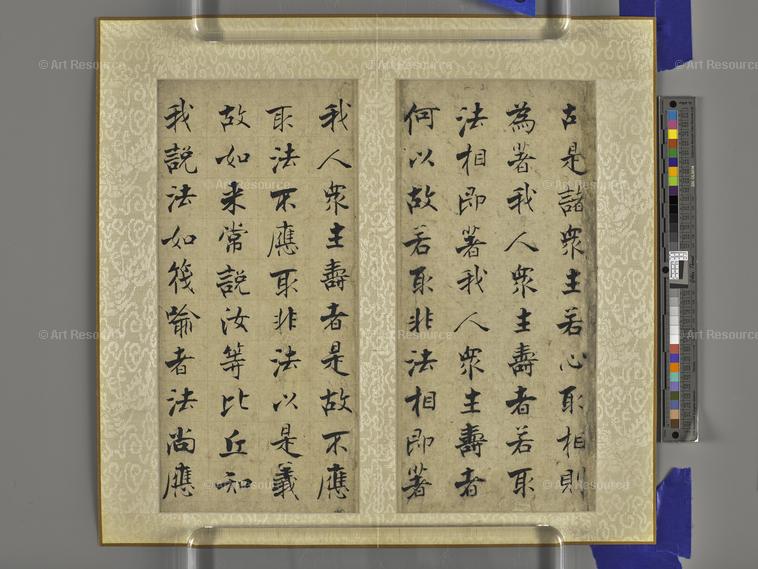 古是諸衆生若心取相則
為著我人衆生壽者若取
法相即著我人衆生壽者
何以故若取非法相即著
我人衆生壽者是故不應
取法不應取非法以是義
故如来常說汝等比丘知
我說法如筏喻者法尚應
© Art Resource
© Art Resource
© Art Resource
© Art Resource
© Art Resource
© Art Resource
© Art Resource
© Art Resource
© Art Resource
© Art Resource
© Art Resource
© Art Resource